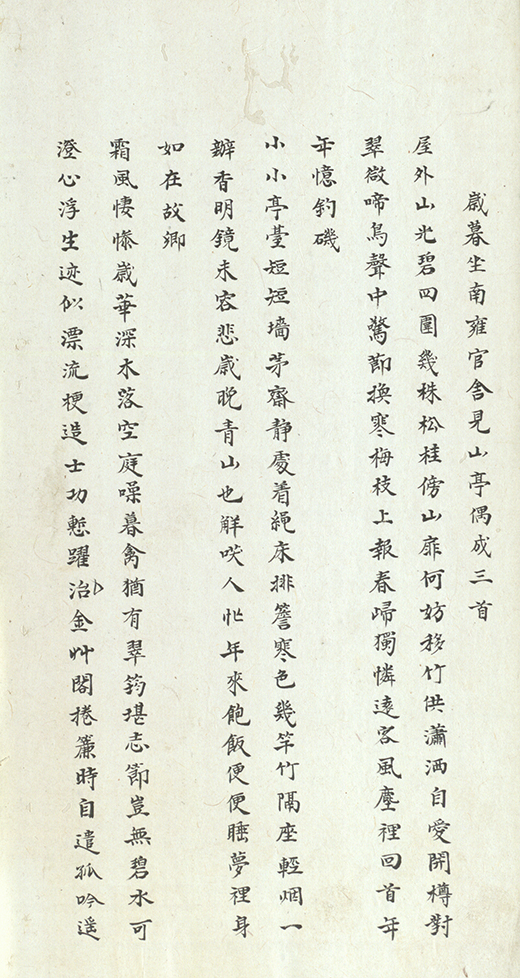 歲暮坐南雍官舍見山亭偶成三首
屋外山光碧四圍幾株松桂傍山扉何妨移竹供瀟洒自愛開樽對
翠微啼鳥聲中驚節換寒梅枝上報春歸獨憐遠客風塵裡回首年
年憶釣磯
小小亭臺短短墻茅齋靜處着繩床排簷寒色幾竿竹隔座輕烟一
瓣香明鏡未容悲歲晚青山也解咲人忙年來飽飯便便睡夢裡身
如在故鄉
霜風悽慘歲華深木落空庭噪暮禽猶有翠筠堪志節豈無碧水可
澄心浮生迹似漂流梗造士功慙躍冶金艸閣捲簾時自遣孤吟遥